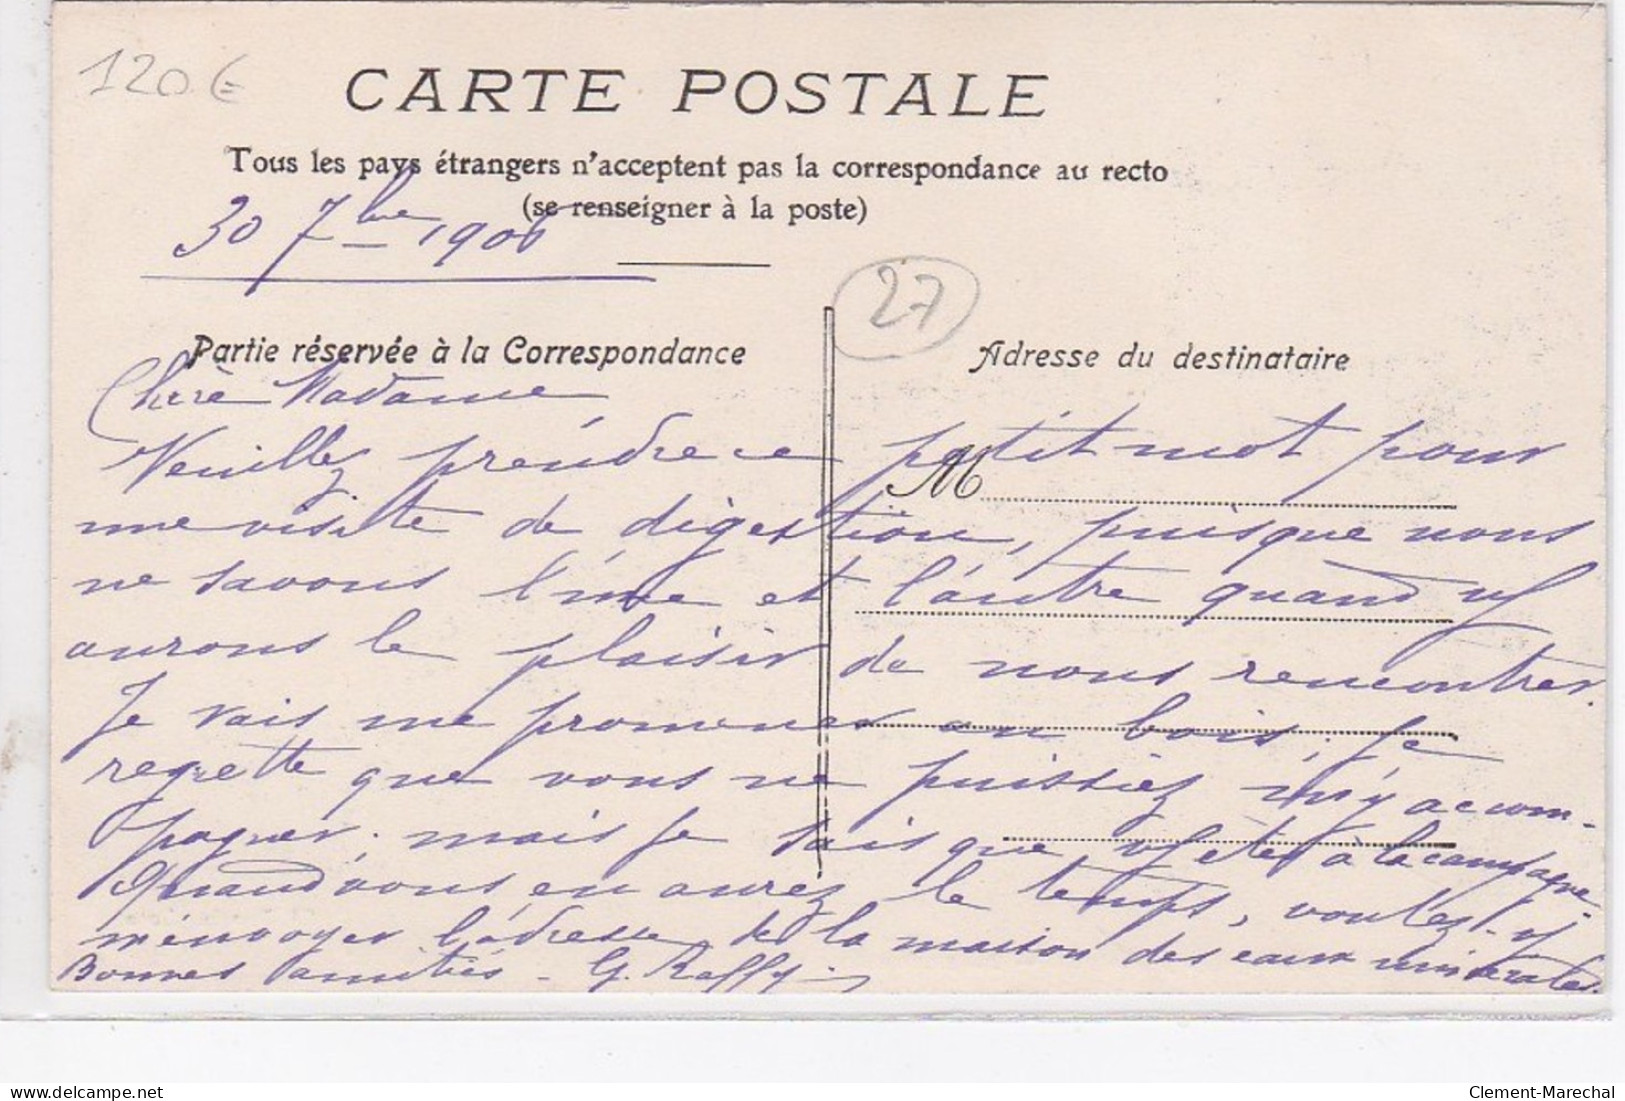 120€
CARTE POSTALE
Tous les pays étrangers n'acceptent pas la correspondance au recto
(se renseigner à la poste)
30 7bre 1906
27
Partie réservée à la Correspondance
Adresse du destinataire
Chère Madame
M
Veuillez prendre ce petit mot pour
une visite de digestion, puisque nous
ne savons l'une et l'autre quand ns
aurons le plaisir de nous rencontrer.
Je vais me promener au bois; je
regrette que vous ne puissiez m'y accom-
pagner; mais je sais que vs êtes à la campagne.
Quand vous en aurez le temps, voulez-vs
m'envoyer l'adresse de la maison des eaux minérales.
Bonnes amitiés - G. Raffy
delcampe.net
Clement-Marechal